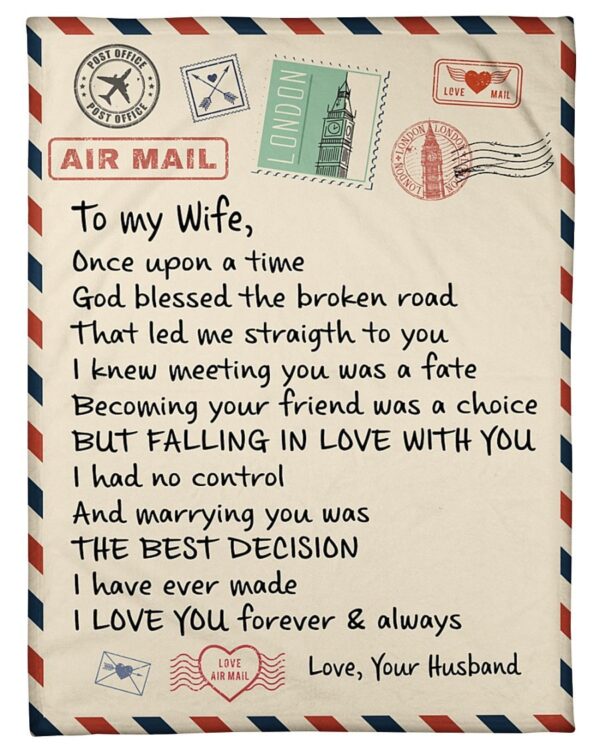 POST OFFICE
POST OFFICE
LONDON
LOVE MAIL
LONDON LONDON LONDON LONDON
AIR MAIL
To my Wife,
Once upon a time
God blessed the broken road
That led me straigth to you
I knew meeting you was a fate
Becoming your friend was a choice
BUT FALLING IN LOVE WITH YOU
I had no control
And marrying you was
THE BEST DECISION
I have ever made
I LOVE YOU forever & always
LOVE
AIR MAIL
Love, Your Husband